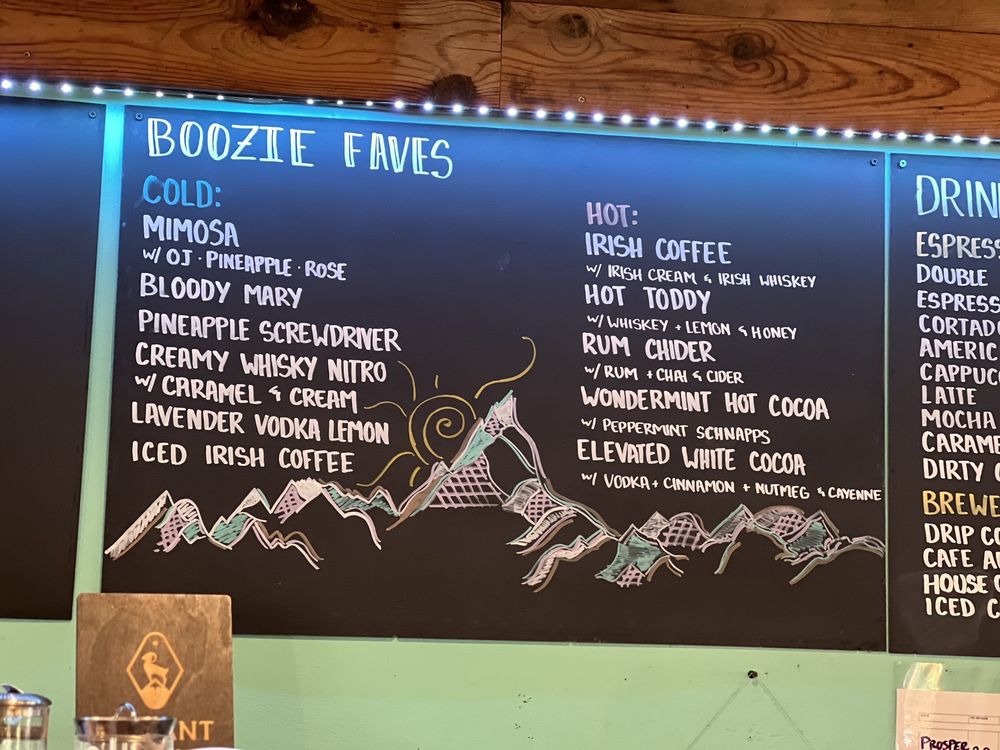 BOOZIE FAVES
COLD:
MIMOSA
w/ OJ · PINEAPPLE · ROSE
BLOODY MARY
PINEAPPLE SCREWDRIVER
CREAMY WHISKY NITRO
w/ CARAMEL & CREAM
LAVENDER VODKA LEMON
ICED IRISH COFFEE
HOT:
IRISH COFFEE
w/ IRISH CREAM & IRISH WHISKEY
HOT TODDY
w/ WHISKEY + LEMON & HONEY
RUM CHIDER
w/ RUM + CHAI & CIDER
WONDERMINT HOT COCOA
w/ PEPPERMINT SCHNAPPS
ELEVATED WHITE COCOA
w/ VODKA + CINNAMON + NUTMEG & CAYENNE
DRIN
ESPRESS
DOUBLE
ESPRESS
CORTAD
AMERIC
CAPPUC
LATTE
MOCHA
CARAME
DIRTY C
BREWE
DRIP CO
CAFE A
HOUSE
ICED C
ANT
PROSPER